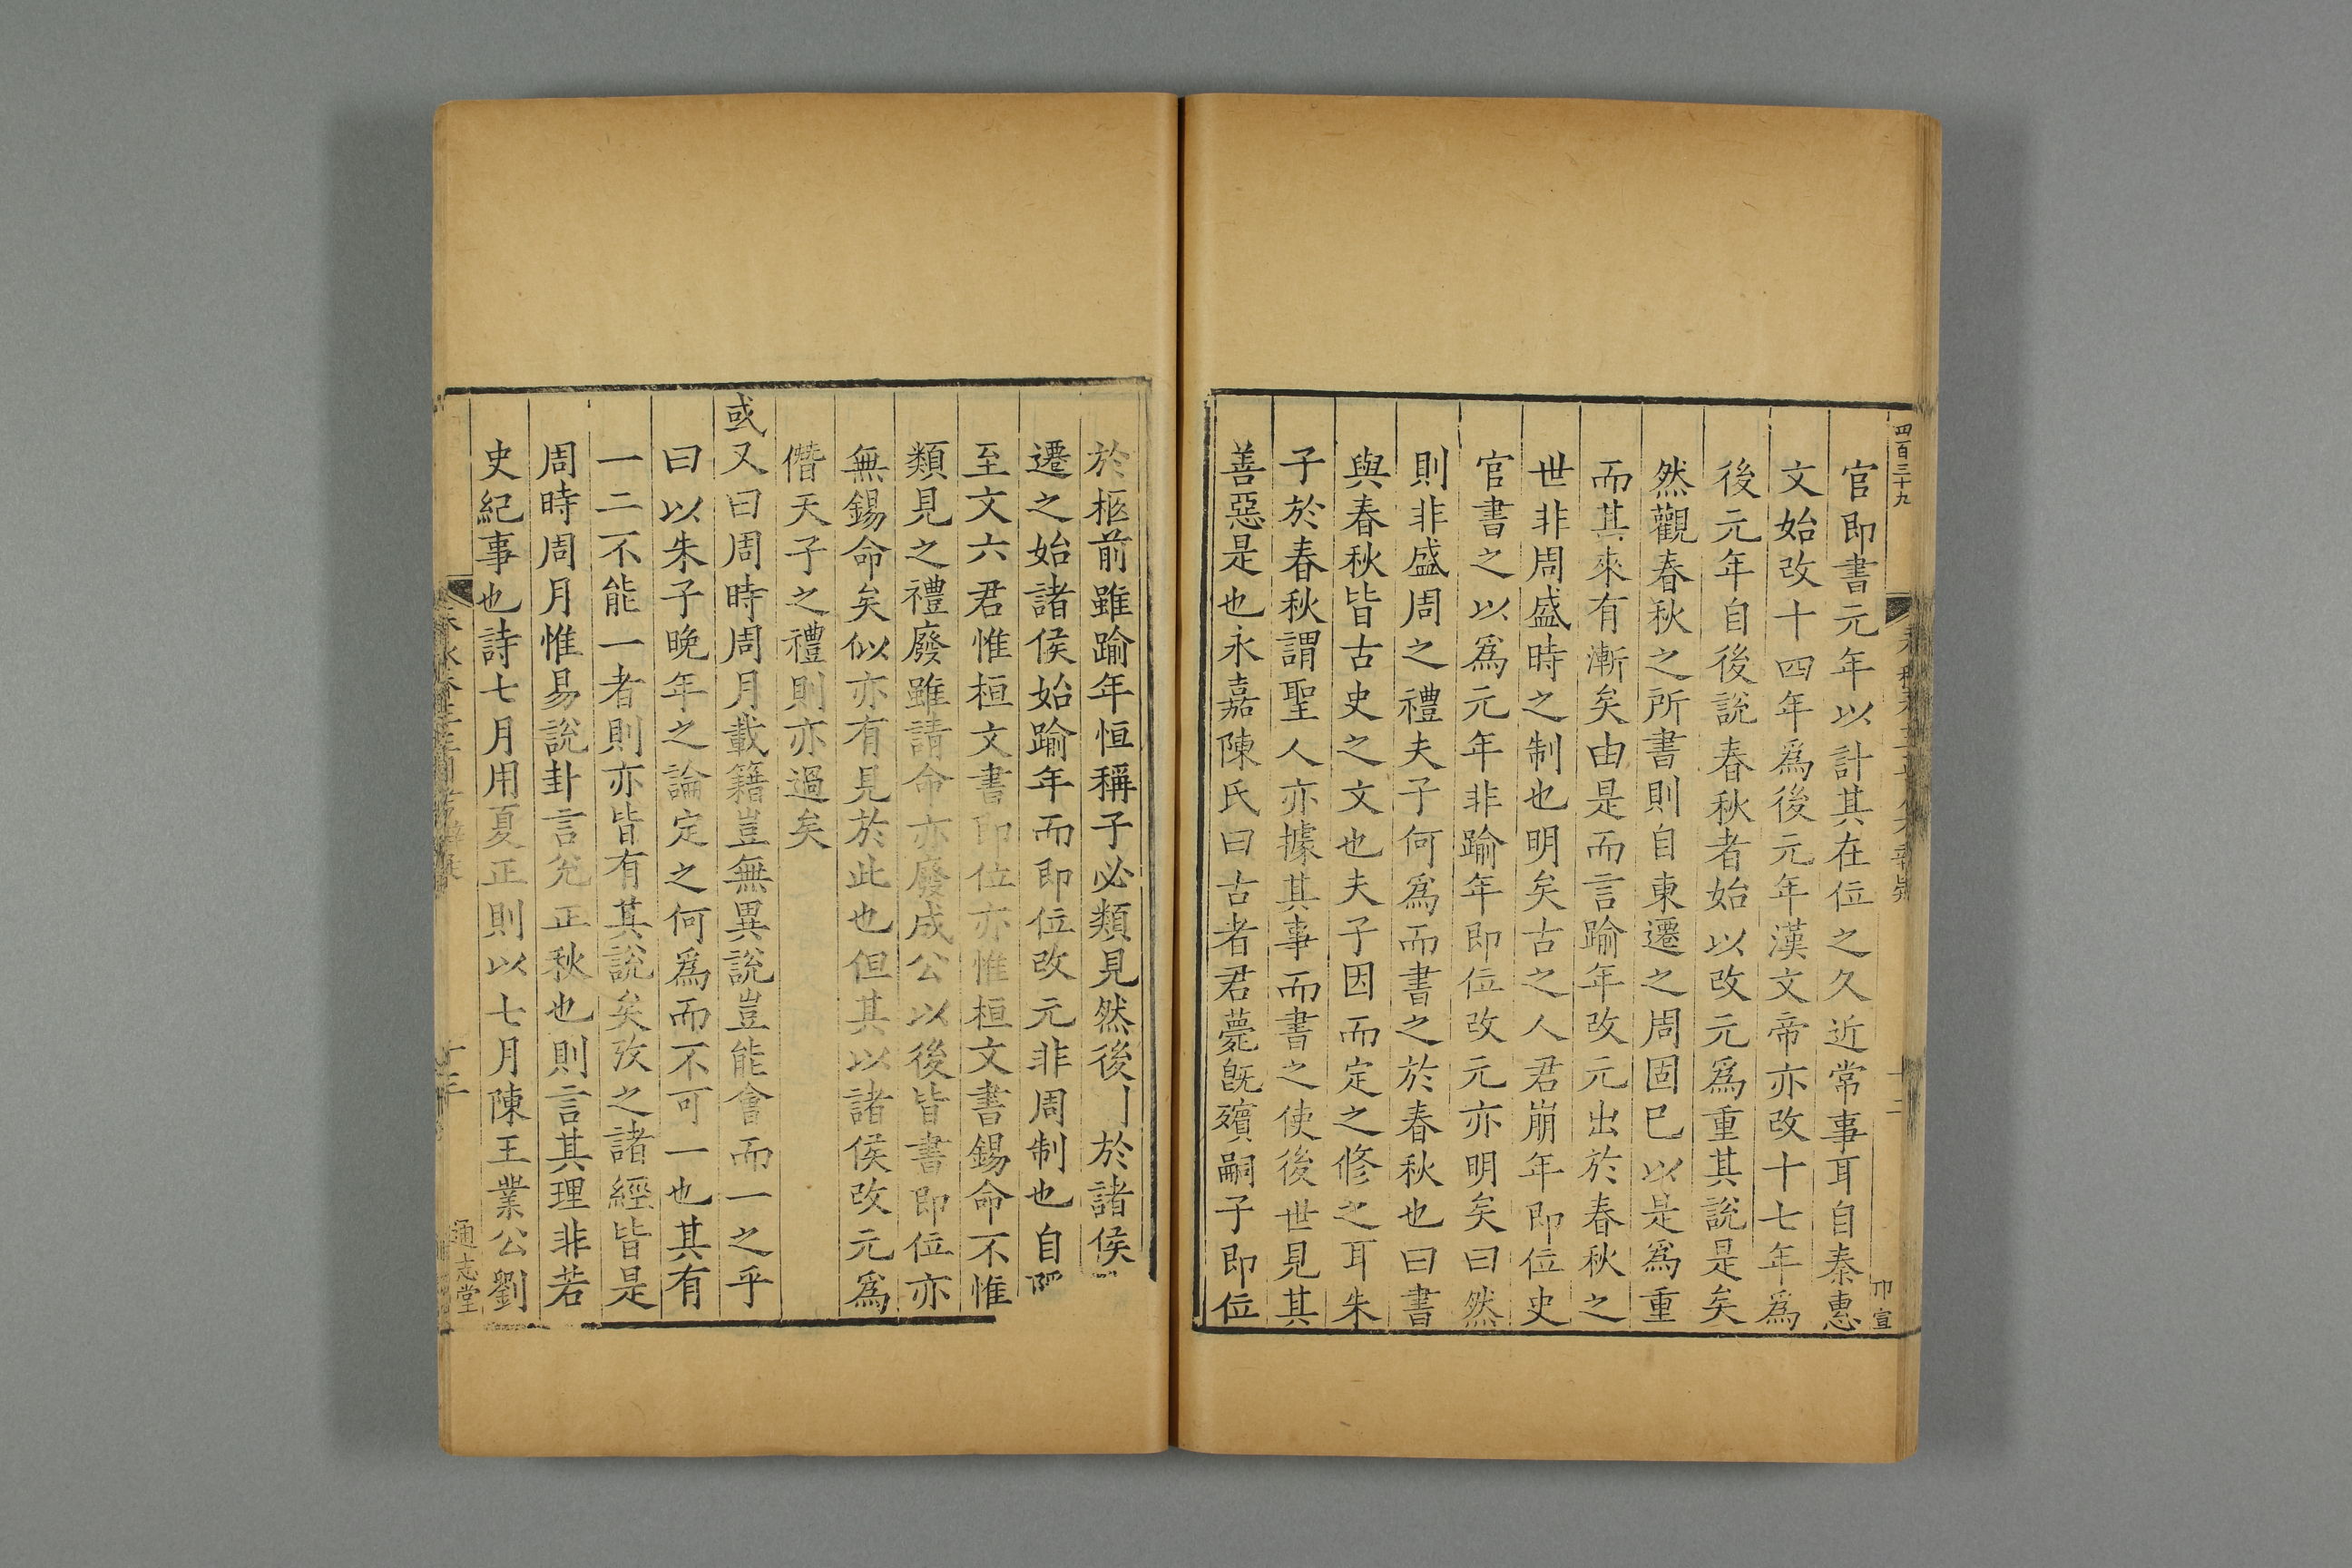 四百三十九
官即書元年以計其在位之久近常事耳自秦惠
文始改十四年為後元年漢文帝亦改十七年為
後元年自後說春秋者始以改元為重其說是矣
然觀春秋之所書則自東遷之周固已以是爲重
而其來有漸矣由是而言踰年改元出於春秋之
世非周盛時之制也明矣古之人君崩年即位史
官書之以爲元年非踰年即位改元亦明矣曰然
則非盛周之禮夫子何爲而書之於春秋也曰書
與春秋皆古史之文也夫子因而定之修之耳朱
子於春秋謂聖人亦據其事而書之使後世見其
善惡是也永嘉陳氏曰古者君薨旣殯嗣子即位
於柩前雖踰年恒稱子必類見然後於諸侯
遷之始諸侯始踰年而即位改元非周制也自
至文六君惟桓文書即位亦惟桓文書錫命不惟
類見之禮廢雖請命亦廢成公以後皆書即位亦
無錫命矣似亦有見於此也但其以諸侯改元爲
僭天子之禮則亦過矣
或又曰周時周月載籍豈無異說豈能會而一之乎
曰以朱子晚年之論定之何爲而不可一也其有
一二不能一者則亦皆有其說矣攷之諸經皆是
周時周月惟易說卦言兌正秋也則言其理非若
史紀事也詩七月用夏正則以七月陳王業公劉
通志堂